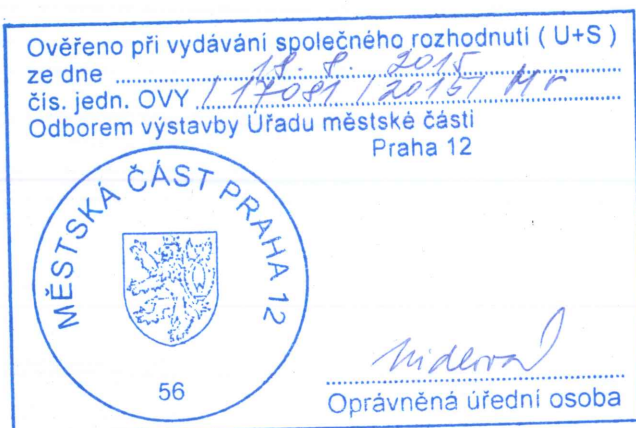 Ověřeno při vydávání společného rozhodnutí ( U+S )
ze dne 18. 8. 2015
čís. jedn. OVY / 17081 / 2015 / Mr
Odborem výstavby Úřadu městské části
Praha 12
MĚSTSKÁ ČÁST PRAHA 12
56
Oprávněná úřední osoba